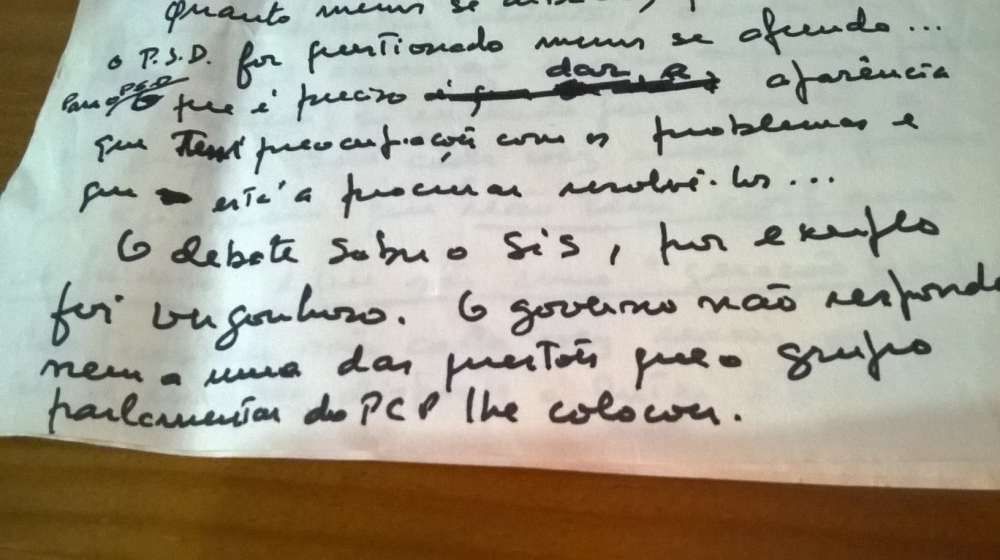 Quanto menos se
o P.S.D. for questionado menos se afunda...
Para o PSD que é preciso dar a aparência
que tem preocupações com os problemas e
que está a procurar resolvê-los...
O debate sobre o SIS, por exemplo
foi vergonhoso. O governo não responde
nem a uma das questões que o grupo
parlamentar do PCP lhe colocou.